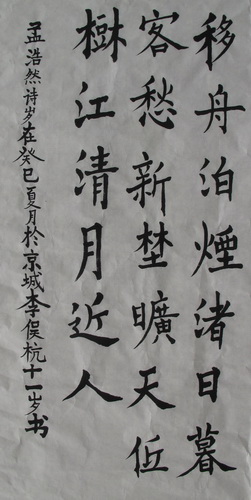 移舟泊煙渚日暮
客愁新埜曠天低
樹江清月近人
孟浩然诗岁在癸巳夏月於京城李俣杭十一岁书